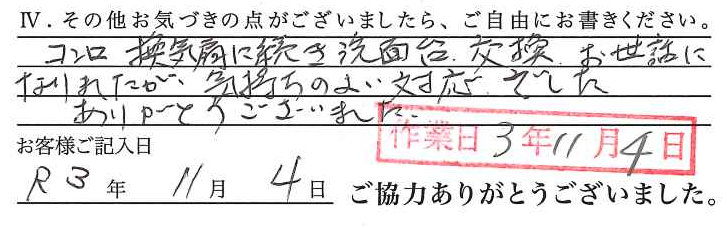 Ⅳ．その他お気づきの点がございましたら、ご自由にお書きください。
コンロ 換気扇に続き洗面台 交換 お世話に
なりましたが、気持ちのよい対応でした
ありがとうございました。
作業日 3年11月4日
お客様ご記入日
R3年 11月 4日 ご協力ありがとうございました。